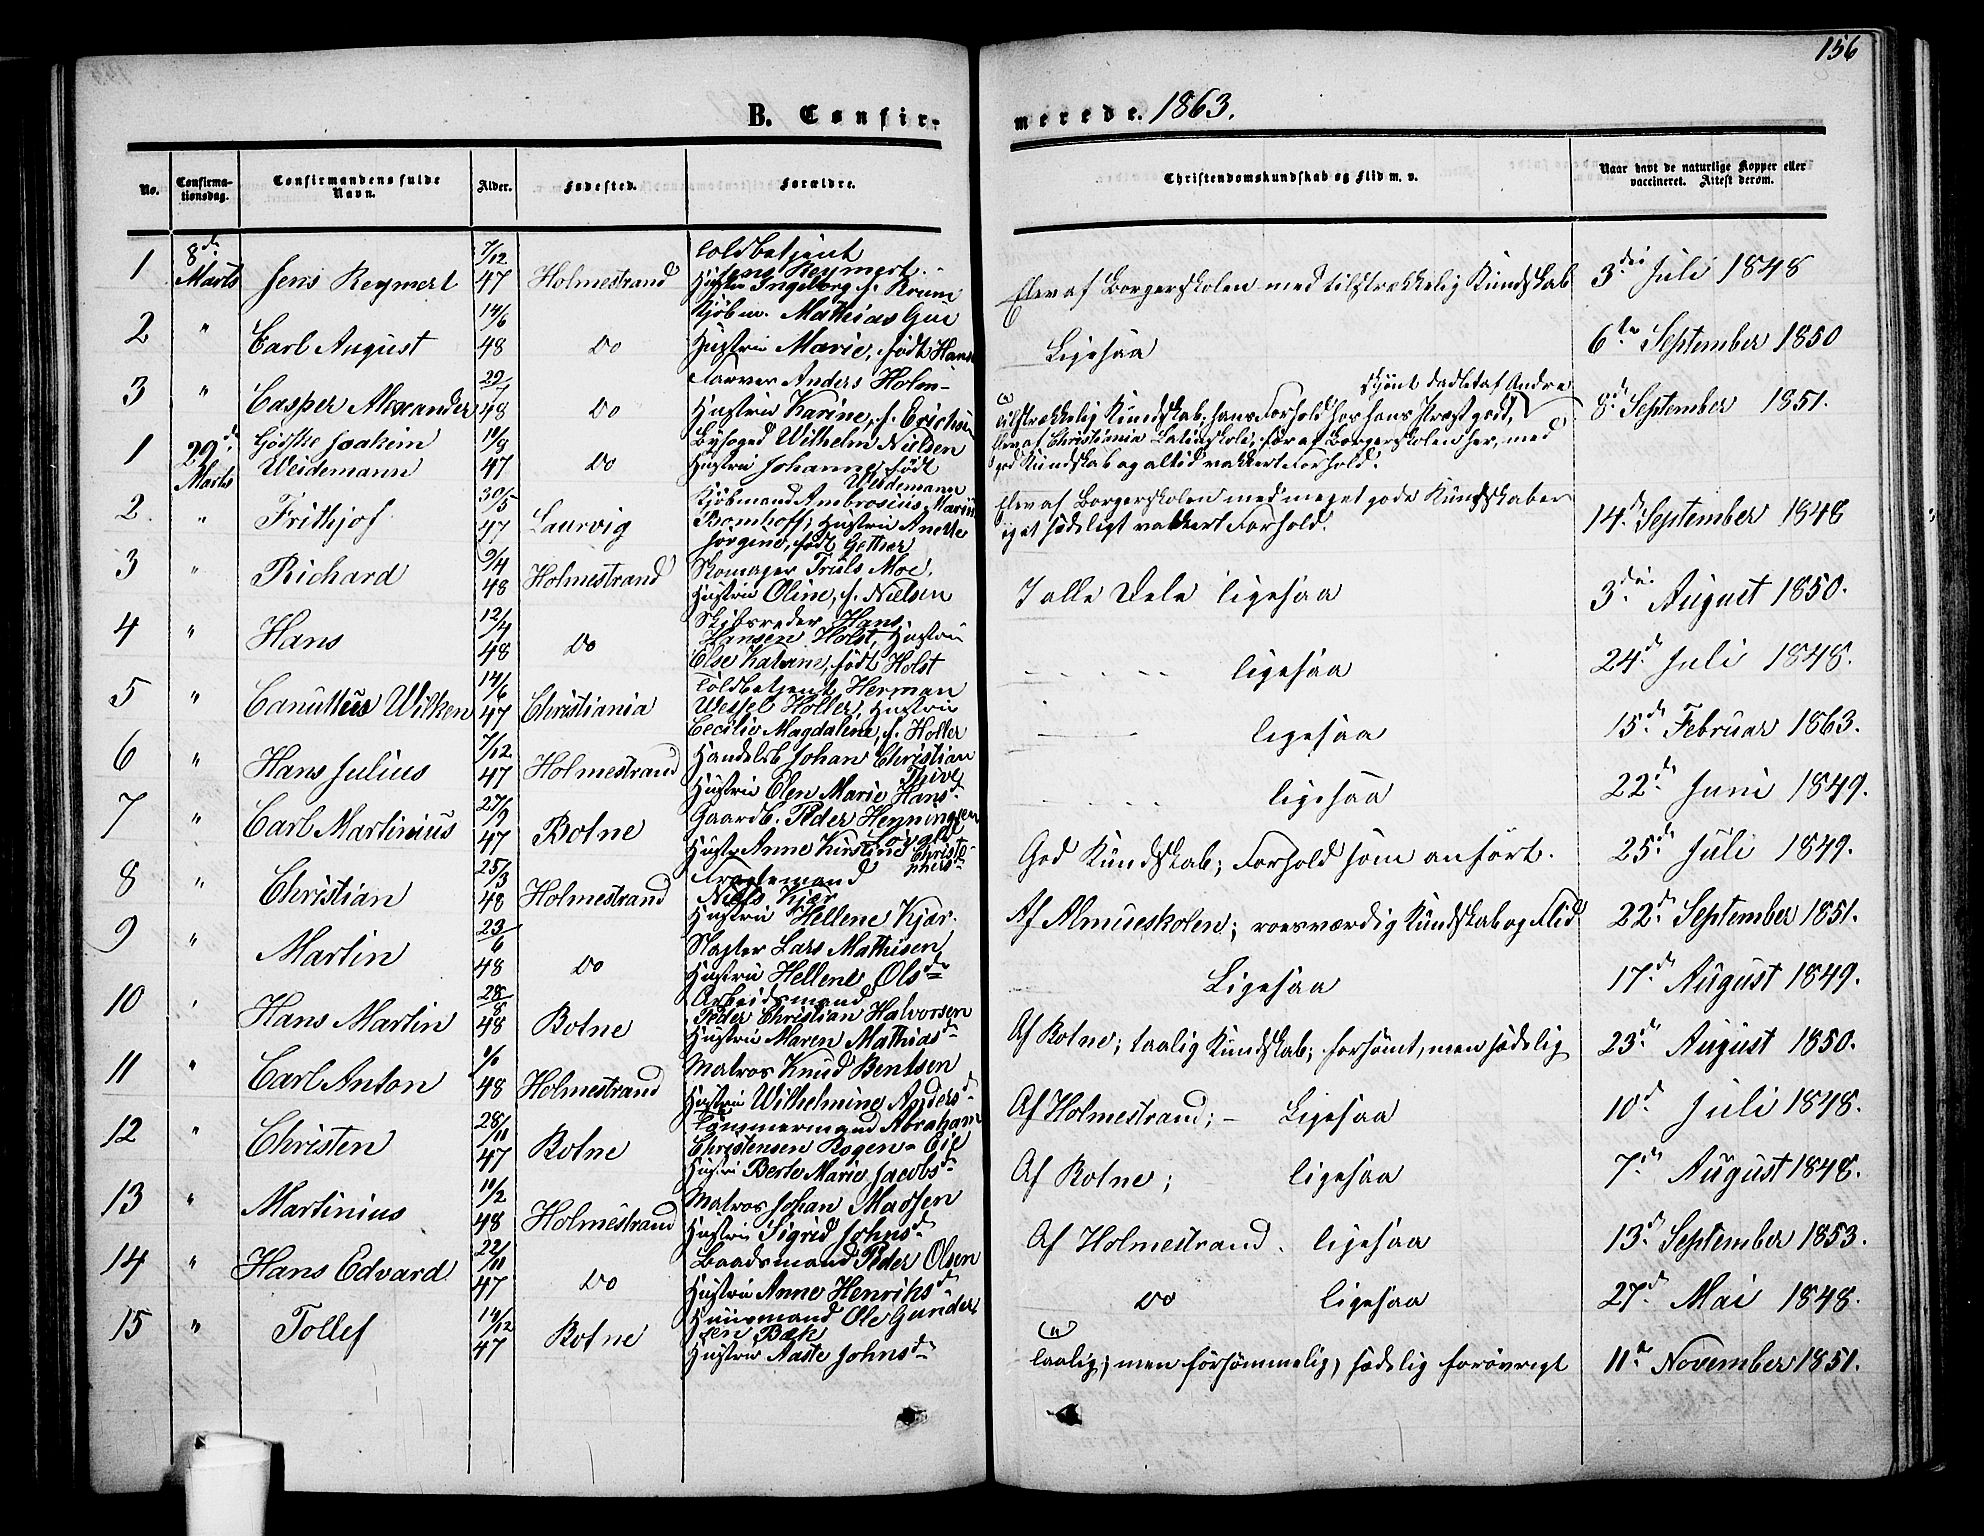 156
B. Confirmerede. 1863.
No. | Confirmationsdag. | Confirmandens fulde Navn. | Alder. | Fødested. | Forældre. | Christendomskundskab og Flid m. v. | Naar havt de naturlige Kopper eller vaccineret. Attest derom.
1 | 8de Marts | Jens Reymert | 7/12 47 | Holmestrand | Toldbetjent Jens Reymert. Hustru Ingeborg f. Bruun | Elev af Borgerskolen med tilstrækkelig Kundskab | 3die Juli 1848
2 | " | Carl August | 14/6 48 | Do | Kjøbm. Mathias Hustru Marie, født | Ligesaa | 6te September 1850
3 | " | Casper Alexander | 29/7 48 | Do | Farver Anders Holm- Hustru Karine, f. Erichsen | Tilstrækkelig Kundskab, hans Forhold hos hans Præst godt, skjønt dadlet af Andre | 8de September 1851.
1 | 29de Marts | Joakim Weidemann | 11/8 47 | Do | Byfoged Wilhelm Nielsen Hustru Johanne, født Weidemann | Elev af Christiania Latinskole, før af Borgerskolen her, med god Kundskab og altid vakkert Forhold.
2. | " | Frithjof | 30/5 47 | Laurvig | Kjøbmand Ambrosius Bomhoff, Hustru Anette Jørgine, født | Elev af Borgerskolen med meget gode Kundskaber og et sædeligt vakkert Forhold. | 14de September 1848
3 | " | Richard | 9/4 48 | Holmestrand | Skomager Truls Moe, Hustru Oline, f. Nielsen | I alle Dele ligesaa | 3die August 1850.
4 | " | Hans | 12/4 48 | Do | Skibsreder Hans Hansen Holst, Hustru Else Katrine, født Holst | - - - - - ligesaa | 24de Juli 1848.
5 | " | Canuttus Wilken | 14/6 47 | Christiania | Toldbetjent Herman Wessel Holter, Hustru Cecilie Magdalene, f. Holter | ligesaa | 15de Februar 1863.
6 | " | Hans Julius | 7/12 47 | Holmestrand | Handelsb. Johan Christian Hustru Olen Marie Hansd. | - - - - ligesaa | 22de Juni 1849.
7 | " | Carl Martinius | 27/9 47 | Botne | Gaardb. Peder Henningsen Hustr. Anne Kirstine Christophersd. | God Kundskab; Forhold som anført. | 25de Juli 1849.
8 | " | Christian | 25/3 48 | Holmestrand | Niels Kjær Hustru Hellene Kjær. | Af Almueskolen; roesværdig Kundskab og Flid | 22de September 1851.
9 | " | Martin | 23/6 48 | Do | Slagter Lars Mathisen Hustru Hellene Olsd. | Ligesaa | 17de August 1849.
10 | " | Hans Martin | 28/8 48 | Botne | Arbeidsmand Peder Christian Halvorsen Hustru Maren Mathiasd. | Af Botne; taalig Kundskab; forsømt, men sædelig | 23de August 1850.
11 | " | Carl Anton | 48 | Holmestrand | Matros Knud Bentsen Hustru Wilhelmine Andersd. | Af Holmestrand; - Ligesaa | 10de Juli 1848.
12 | " | Christen | 28/11 47 | Botne | Tømmermand Abraham Christensen Hustru Berte Marie Jacobsd. | Af Botne; ligesaa | 7de August 1848.
13 | " | Martinius | 11/2 48 | Holmestrand | Matros Johan Madsen Hustru Sigrid Johnsd. | Af Holmestrand. ligesaa | 13de September 1853.
14 | " | Hans Edvard | 22/11 47 | Do | Baadsmand Peder Olsen Hustru Anne Henriksd. | Do ligesaa | 27de Mai 1848.
15 | " | Tollef | 14/12 47 | Botne | Huusmand Ole Gundersen Bæk Hustru Aaste Johnsd. | taalig; men forsømmelig, sædelig forøvrigt | 11te November 1851.